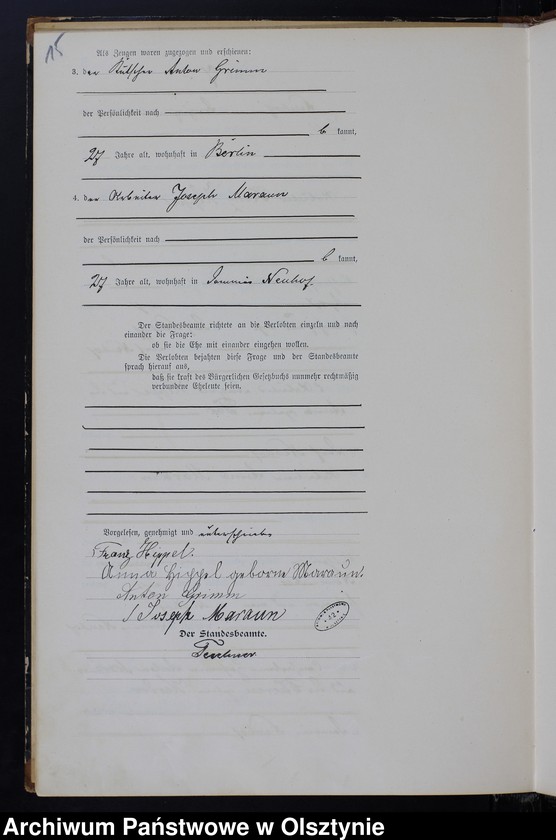 15
Als Zeugen waren zugezogen und erschienen:
3. der Kutscher Anton Grimm
der Persönlichkeit nach
b kannt,
27 Jahre alt, wohnhaft in Berlin
4. der Arbeiter Joseph Maraun
der Persönlichkeit nach
b kannt,
27 Jahre alt, wohnhaft in Neuhof
Der Standesbeamte richtete an die Verlobten einzeln und nach
einander die Frage:
ob sie die Ehe mit einander eingehen wollen.
Die Verlobten bejahten diese Frage und der Standesbeamte
sprach hierauf aus,
daß sie kraft des Bürgerlichen Gesetzbuchs nunmehr rechtmäßig
verbundene Eheleute seien.
Vorgelesen, genehmigt und unterschrieben
Franz Hippel.
Anna Hippel geborne Maraun.
Anton Grimm
Joseph Maraun
Der Standesbeamte.
Archiwum Państwowe w Olsztynie